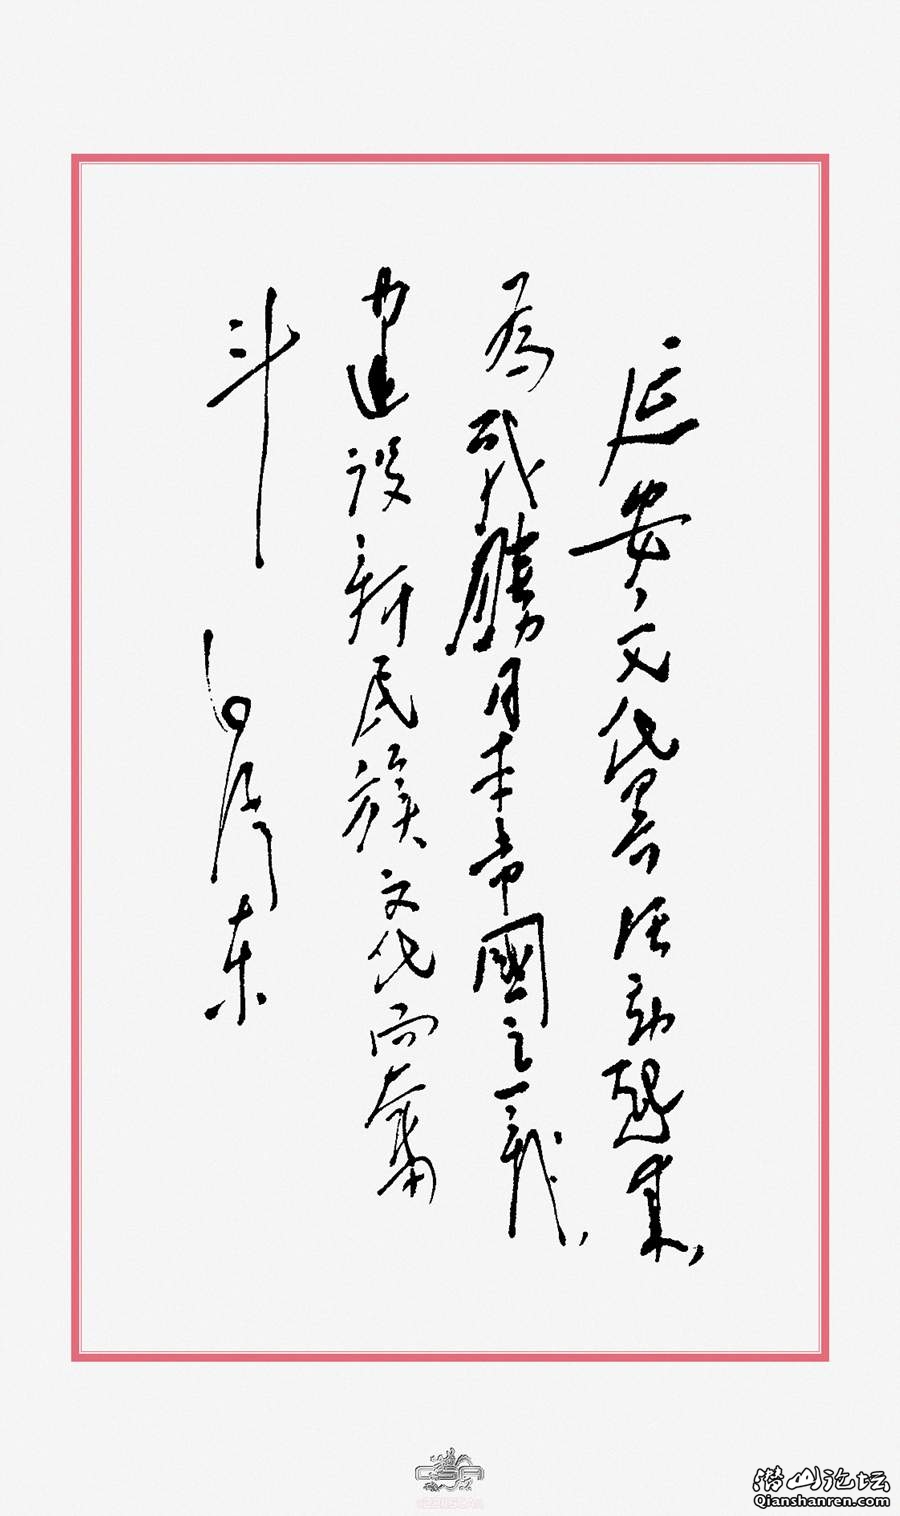 延安文化界活动起来，
為战勝日本帝國主義，
为建设新民族文化而奋
斗
毛泽东
CSA
潜山论坛
Qianshanren.com